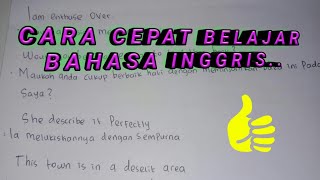 I am Enthose Over.
CARA CEPAT BELAJAR
BAHASA INGGRIS..
Maukah anda cukup berbaik hati dengan buku ini Pada
Saya?
She describe it Perfectly
Ia melukiskannya dengan Sempurna
This town is in a desert area